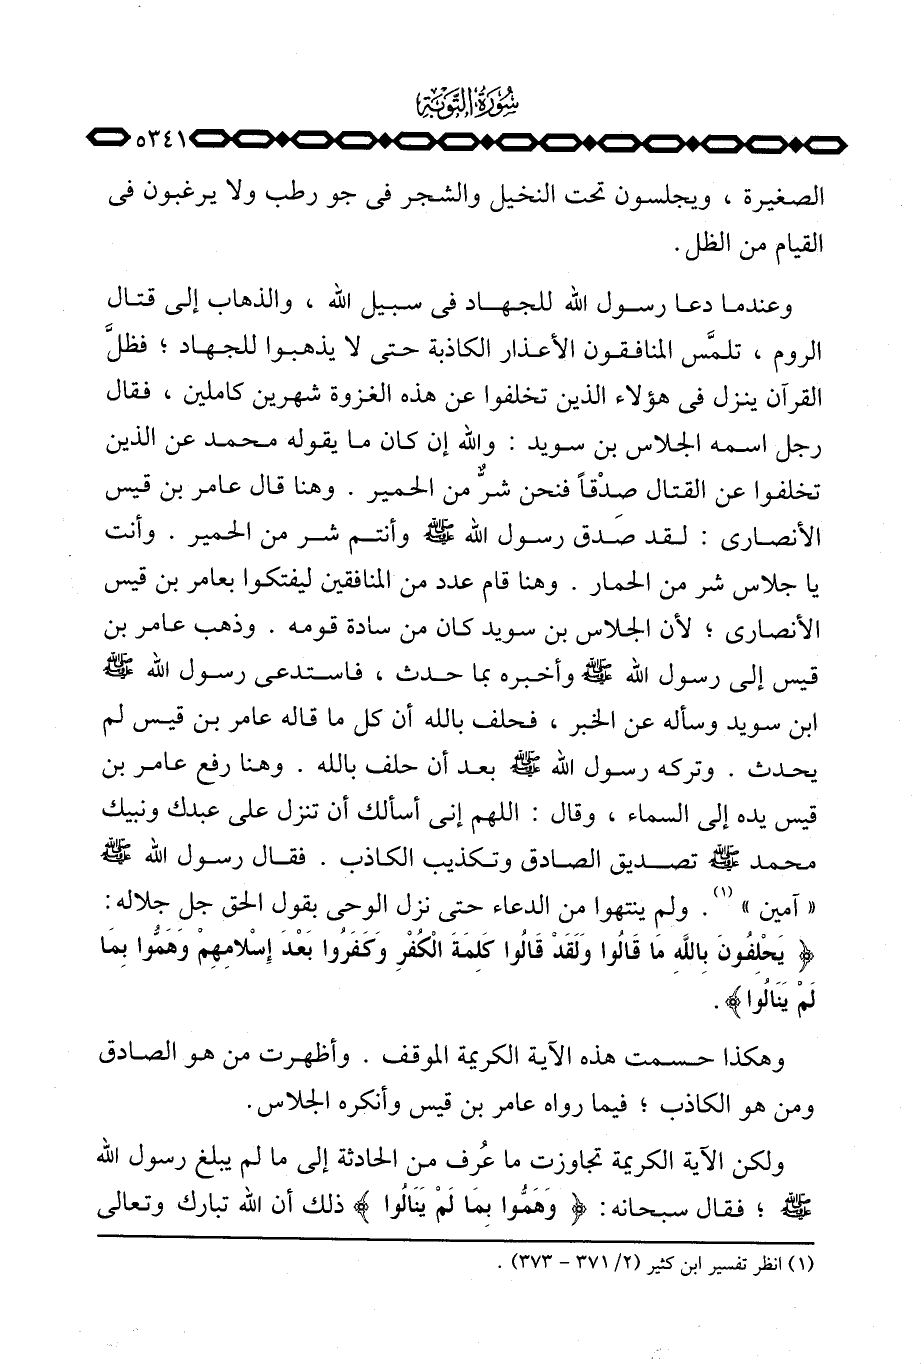 سورة التوبة
٥٣٤١
الصغيرة ، ويجلسون تحت النخيل والشجر فى جو رطب ولا يرغبون فى
القيام من الظل .
وعندما دعا رسول الله للجهاد فى سبيل الله ، والذهاب إلى قتال
الروم ، تلمَّس المنافقون الأعذار الكاذبة حتى لا يذهبوا للجهاد ؛ فظلَّ
القرآن ينزل فى هؤلاء الذين تخلفوا عن هذه الغزوة شهرين كاملين ، فقال
رجل اسمه الجلاس بن سويد : والله إن كان ما يقوله محمد عن الذين
تخلفوا عن القتال صدْقاً فنحن شرٌّ من الحمير . وهنا قال عامر بن قيس
الأنصارى : لقد صَدق رسول الله ﷺ وأنتم شر من الحمير . وأنت
يا جلاس شر من الحمار . وهنا قام عدد من المنافقين ليفتكوا بعامر بن قيس
الأنصارى ؛ لأن الجلاس بن سويد كان من سادة قومه . وذهب عامر بن
قيس إلى رسول الله ﷺ وأخبره بما حدث ، فاستدعى رسول الله ﷺ
ابن سويد وسأله عن الخبر ، فحلف بالله أن كل ما قاله عامر بن قيس لم
يحدث . وتركه رسول الله ﷺ بعد أن حلف بالله . وهنا رفع عامر بن
قيس يده إلى السماء ، وقال : اللهم إنى أسألك أن تنزل على عبدك ونبيك
محمد ﷺ تصديق الصادق وتكذيب الكاذب . فقال رسول الله ﷺ
« آمين » (١) . ولم ينتهوا من الدعاء حتى نزل الوحى بقول الحق جل جلاله :
﴿ يَحْلِفُونَ بِاللَّهِ مَا قَالُوا وَلَقَدْ قَالُوا كَلِمَةَ الْكُفْرِ وَكَفَرُوا بَعْدَ إِسْلَامِهِمْ وَهَمُّوا بِمَا
لَمْ يَنَالُوا ﴾ .
وهكذا حسمت هذه الآية الكريمة الموقف . وأظهرت من هو الصادق
ومن هو الكاذب ؛ فيما رواه عامر بن قيس وأنكره الجلاس .
ولكن الآية الكريمة تجاوزت ما عُرف من الحادثة إلى ما لم يبلغ رسول الله
ﷺ ؛ فقال سبحانه : ﴿ وَهَمُّوا بِمَا لَمْ يَنَالُوا ﴾ ذلك أن الله تبارك وتعالى
(١) انظر تفسير ابن كثير (٢/ ٣٧١ - ٣٧٣) .